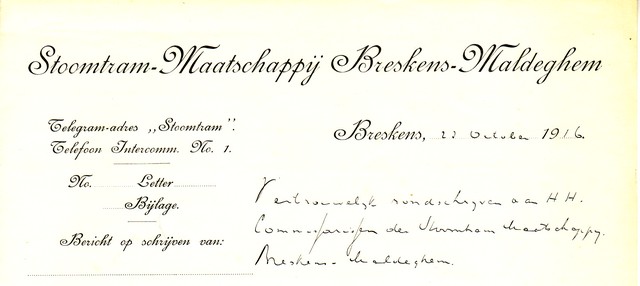 Stoomtram-Maatschappij Breskens-Maldeghem
Telegram-adres „Stoomtram".
Telefoon Intercomm. No. 1.
Breskens, 22 October 1916.
No. Letter
Bijlage.
Bericht op schrijven van:
Vertrouwelijk rondschrijven aan H H.
Commissarissen der Stoomtram Maatschappij
Breskens-Maldeghem.